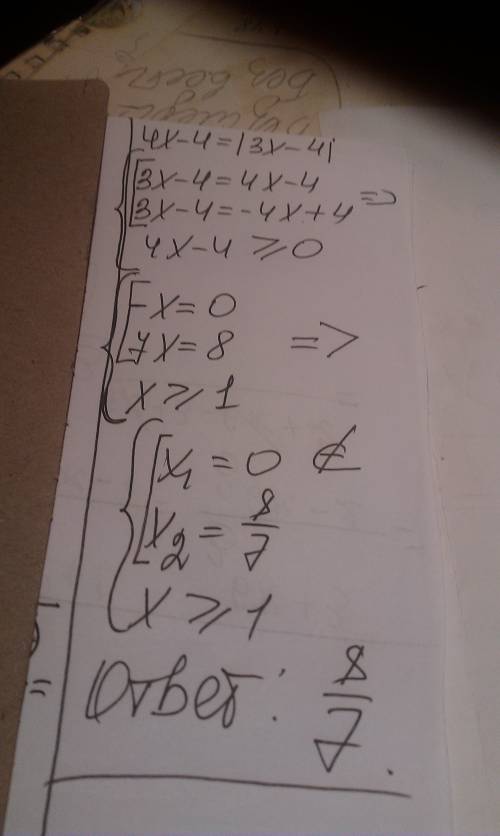 4x-4=|3x-4|
3x-4=4x-4
3x-4=-4x+4 =>
4x-4 ⩾ 0
-x=0
7x=8 =>
x ⩾ 1
x₁ = 0 ∉
x₂ = 8/7
x ⩾ 1
Ответ: 8/7.
без всех